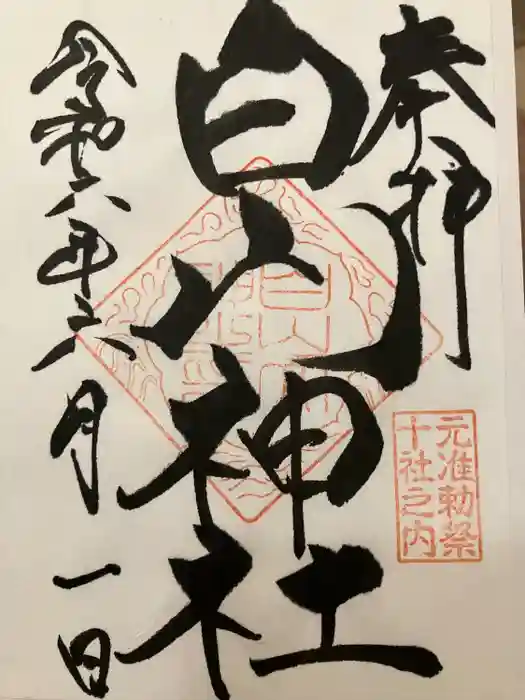 奉拝
白山神社
令和六年六月一日
元准勅祭
十社之内